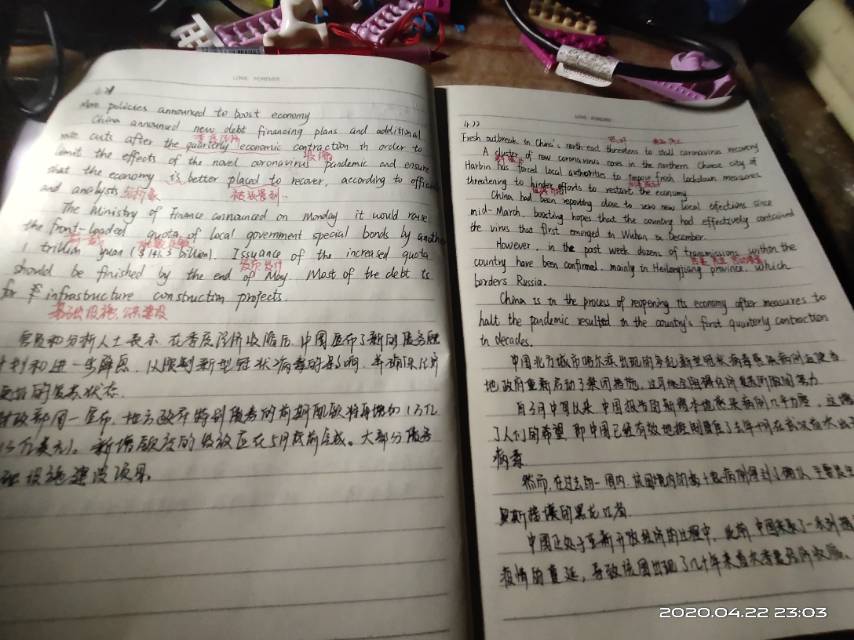 LOVE FOREVER
4.21
More policies announced to boost economy
China announced new debt financing plans and additional
rate cuts after the quarterly economic contraction in order to
季度经济
收缩
limit the effects of the novel coronavirus pandemic and ensure
that the economy is better placed to recover, according to
and analysts.
The Ministry of Finance announced on Monday it would raise
the front-loaded quota of local government special bonds by
1 trillion yuan ($141.3 billion). Issuance of the increased quota
should be finished by the end of May. Most of the debt is
for infrastructure construction projects.
基础设施
官员和分析人士表示, 在季度经济收缩后, 中国宣布了新的债务融
计划和进一步降息, 以限制新型冠状病毒的影响, 并确保经济
更好的复苏状态.
财政部周一宣布, 地方政府特别债券的前期配额将再增加1万亿
新增额度的发放应在5月底前完成。大部分债务
础设施建设项目.
LOVE FOREVER
4.22
Fresh outbreak in China's north-east threatens to stall coronavirus recovery
A cluster of new coronavirus cases in the northern Chinese city of
Harbin has forced local authorities to impose fresh lockdown measures
threatening to hinder efforts to restart the economy.
China had been reporting close to zero new local infections since
mid-March, boosting hopes that the country had effectively contained
the virus that first emerged in Wuhan in December.
However, in the past week dozens of transmissions within the
country have been confirmed, mainly in Heilongjiang province, which
borders Russia.
China is in the process of reopening its economy after measures to
halt the pandemic resulted in the country's first quarterly contraction
in decades.
中国北方城市哈尔滨出现的多起新型冠状病毒
地政府重新启动了禁闭措施,
自3月中旬以来, 中国报告的新增本地感染病例几乎为零,
了人们的希望, 即中国已经有效地控制
病毒
然而, 在过去的一周内, 该国境内的数十起病例得到了确认, 主要
俄罗斯接壤的黑龙江省.
中国正处于重新开放经济的过程中, 此前, 中国采取了一系列
疫情的蔓延, 导致该国出现了几十年来首次季度经济收缩.
2020.04.22 23:03